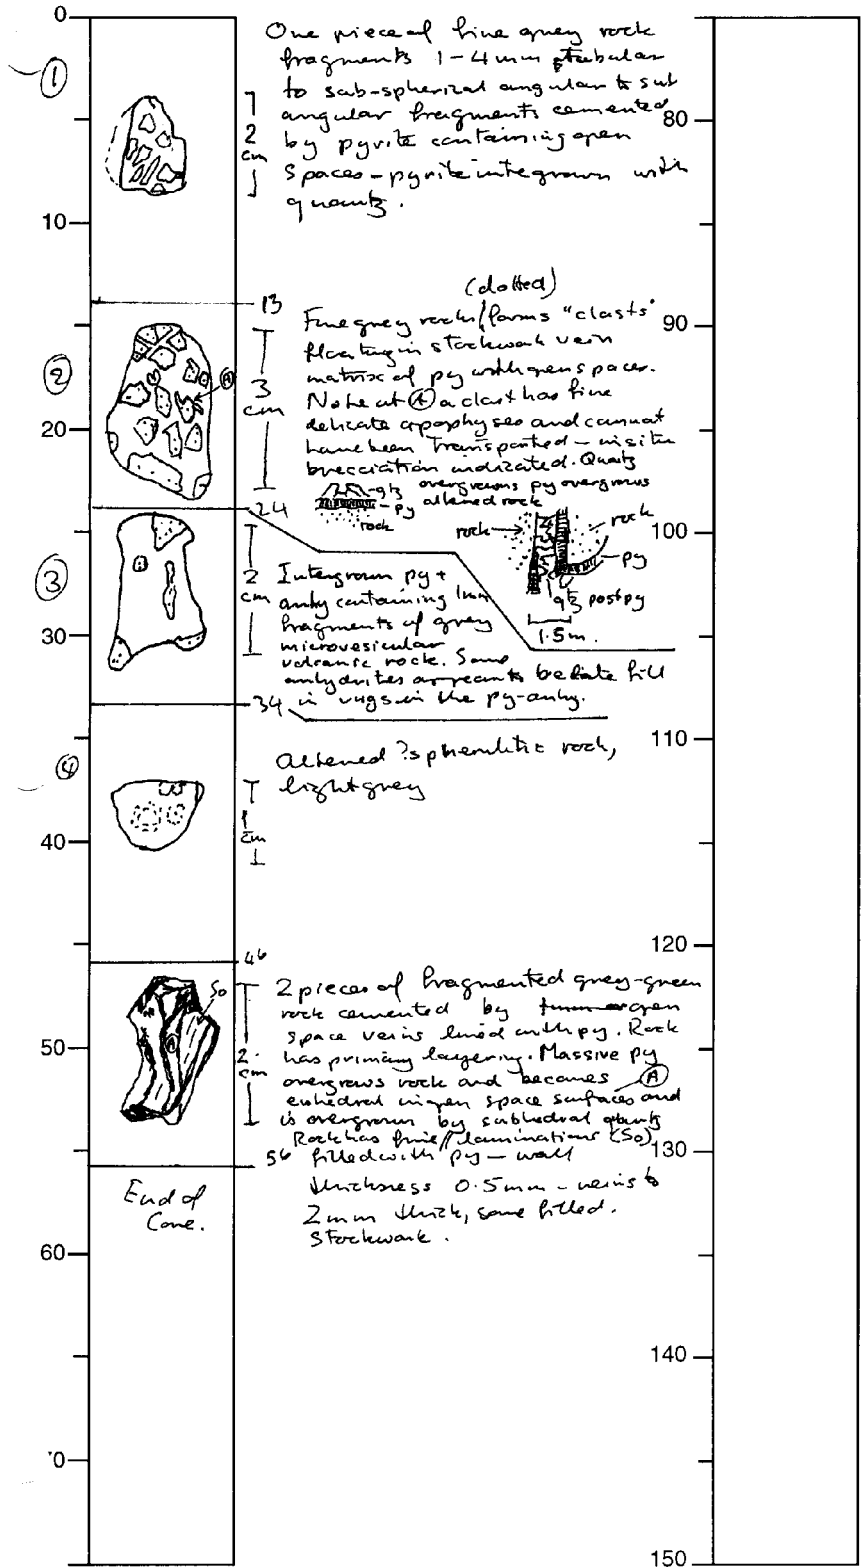 0
10
20
30
40
50
60
70
80
90
100
110
120
130
140
150
①
2
cm
One piece of fine grey rock
fragments 1-4mm, tabular
to sub-spherical angular to sub
angular fragments cemented
by pyrite containing open
spaces - pyrite intergrown with
quartz.
13
②
A
3
cm
(dotted)
Fine grey rock / forms "clasts"
floating in stockwork vein
matrix of py with open spaces.
Note at Ⓐ a clast has fine
delicate apophyses and cannot
have been transported - insitu
brecciation indicated. Quartz
qtz overgrows py overgrows
py altered rock
rock
24
rock
rock
py
qtz post py
1.5m.
③
2
cm
Intergrown py +
anhy containing 1mm
fragments of grey
microvesicular
volcanic rock. Some
anhydrites appears to be late fill
in vugs in the py-anhy.
34
④
1
cm
Altered ?spherulitic rock,
light grey
46
So
A
2
cm
2 pieces of fragmented grey-green
rock cemented by open
space veins lined with py. Rock
has primary layering. Massive py
overgrows rock and becomes Ⓐ
euhedral in open space surfaces and
is overgrown by subhedral quartz
Rock has fine // laminations (So)
56 filled with py - wall
thickness 0.5mm - veins to
2mm thick, some filled.
Stockwork.
End of
Core.